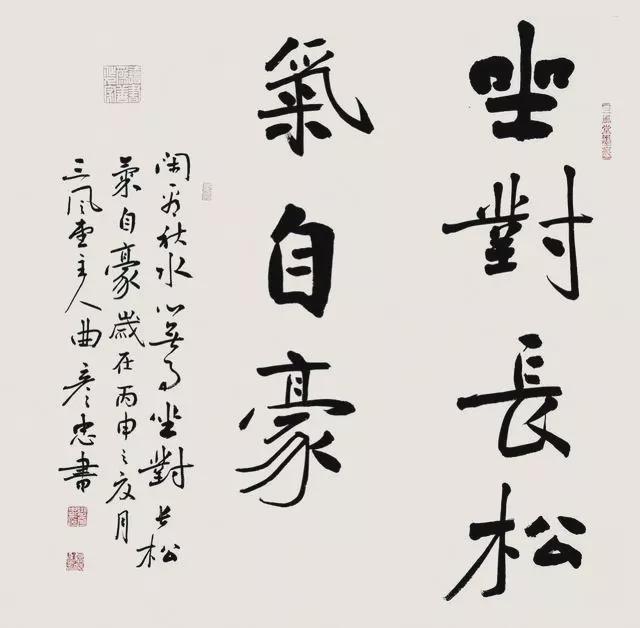 坐對長松
氣自豪
闲看秋水心無事坐對長松
氣自豪歲在丙申之夏月
三风堂主人曲彦忠書